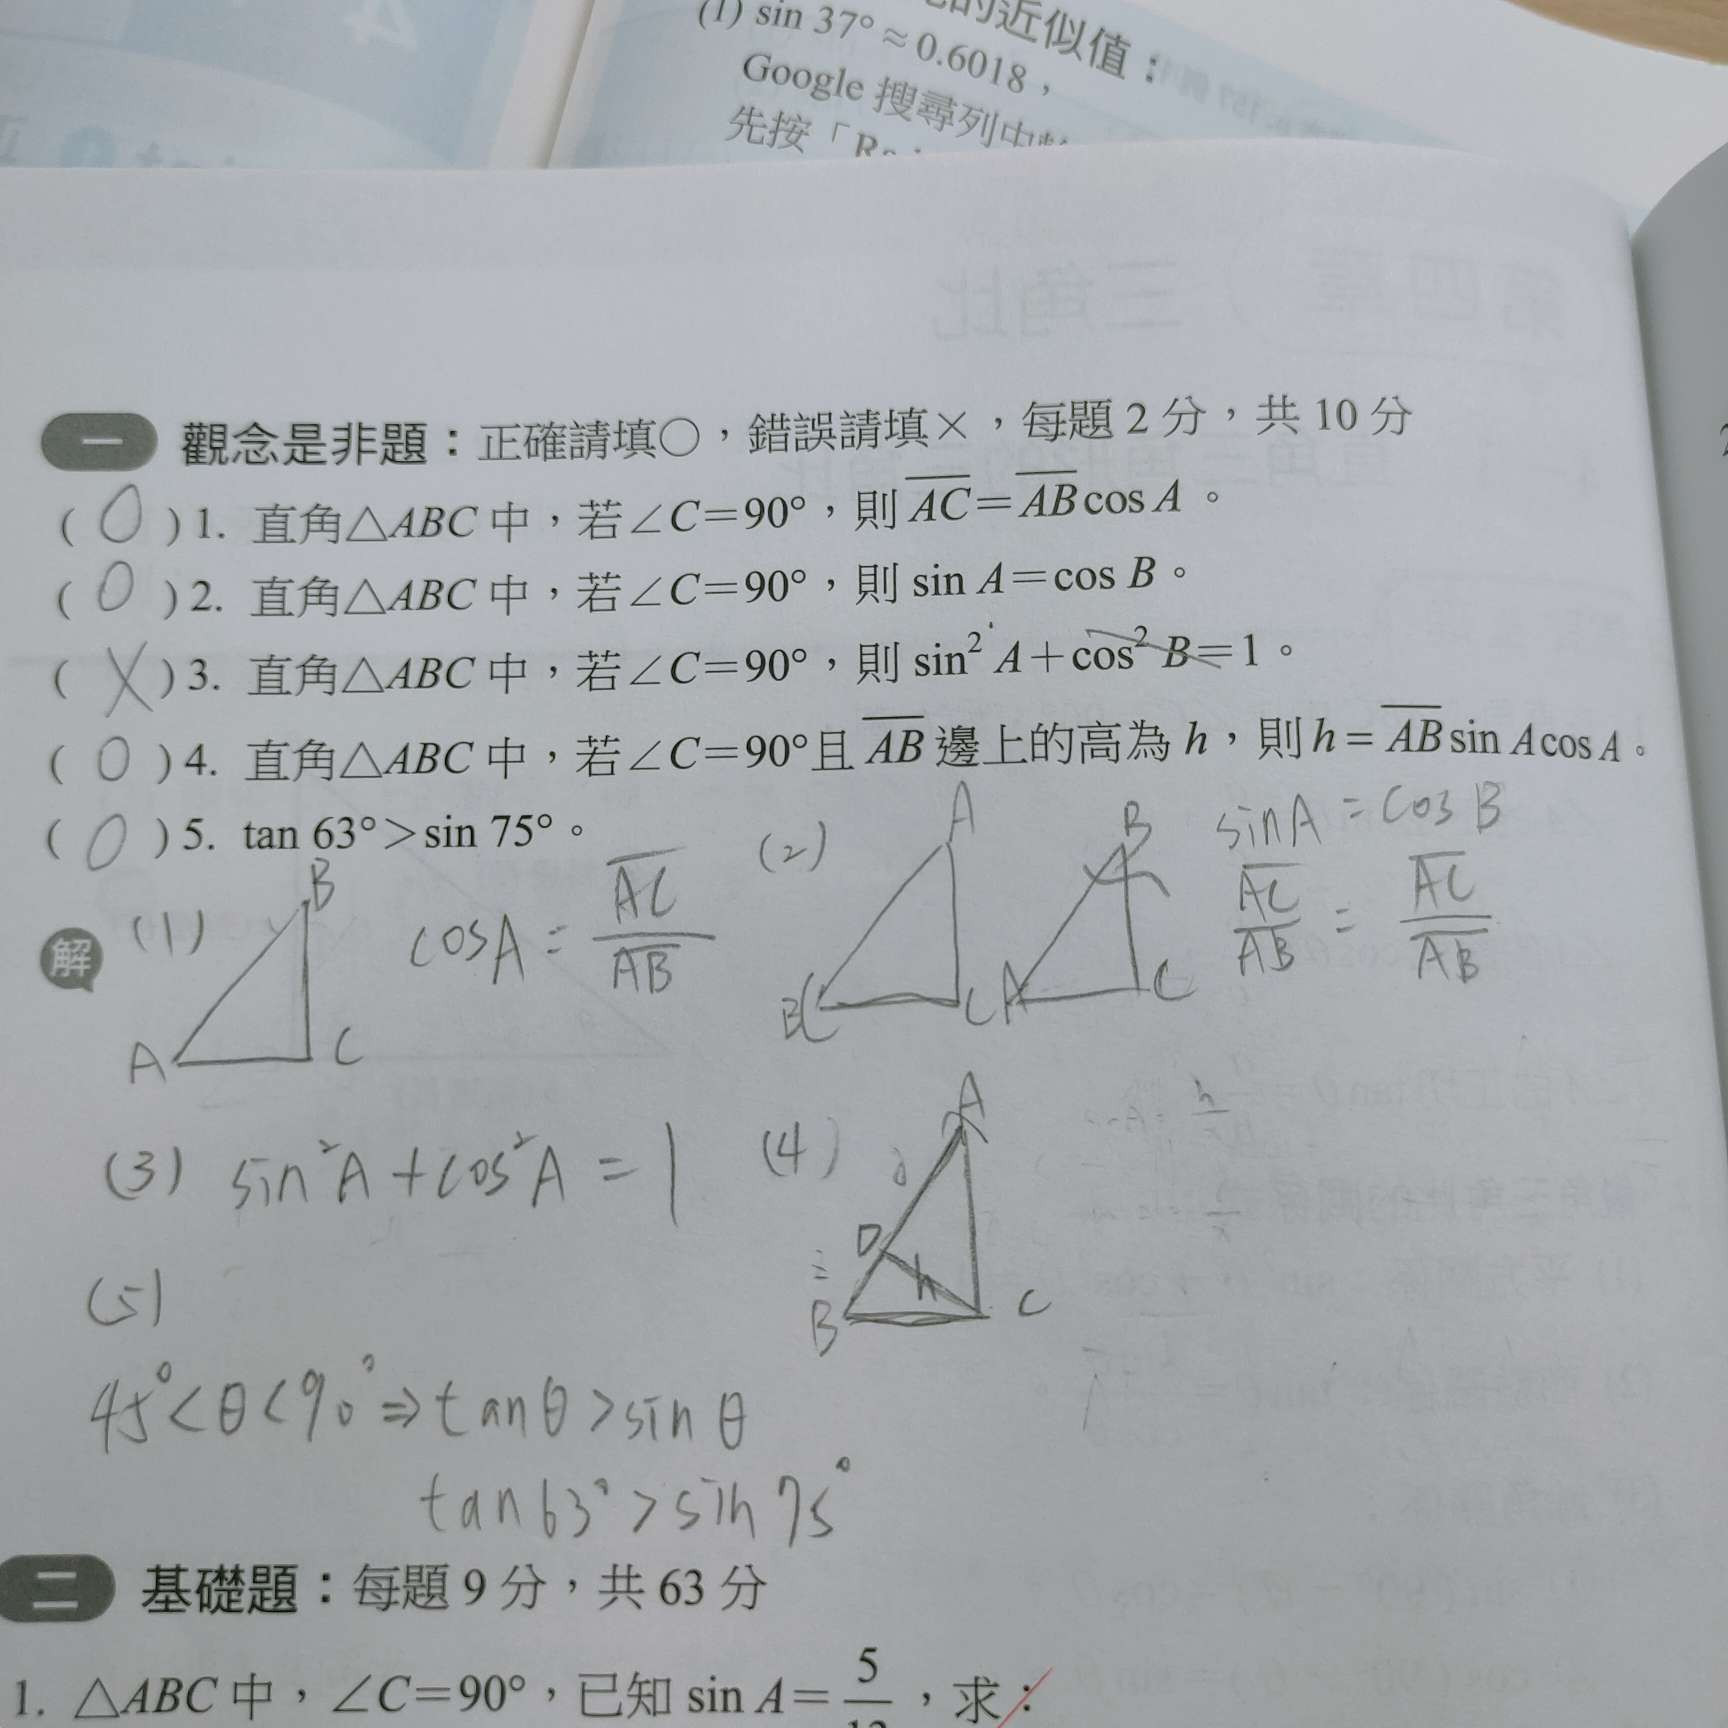 的近似值：
(1) sin 37° ≈ 0.6018，
Google 搜尋列中
先按「R
一 觀念是非題：正確請填○，錯誤請填×，每題 2 分，共 10 分
( O ) 1. 直角△ABC 中，若∠C=90°，則 \overline{AC}=\overline{AB}cos A。
( O ) 2. 直角△ABC 中，若∠C=90°，則 sin A=cos B。
( X ) 3. 直角△ABC 中，若∠C=90°，則 sin² A+cos² B=1。
( O ) 4. 直角△ABC 中，若∠C=90°且 \overline{AB} 邊上的高為 h，則 h=\overline{AB} sin A cos A。
( O ) 5. tan 63°>sin 75°。
解
(1) A B C cosA = \overline{AC}/\overline{AB}
(2) A B C A B C sinA = cosB
\overline{AC}/\overline{AB} = \overline{AC}/\overline{AB}
(3) sin²A + cos²A = 1
(4) A D h B C
(5)
45°<θ<90° ⇒ tanθ>sinθ
tan63°>sin75°
二 基礎題：每題 9 分，共 63 分
1. △ABC 中，∠C=90°，已知 sin A=5/13，求：